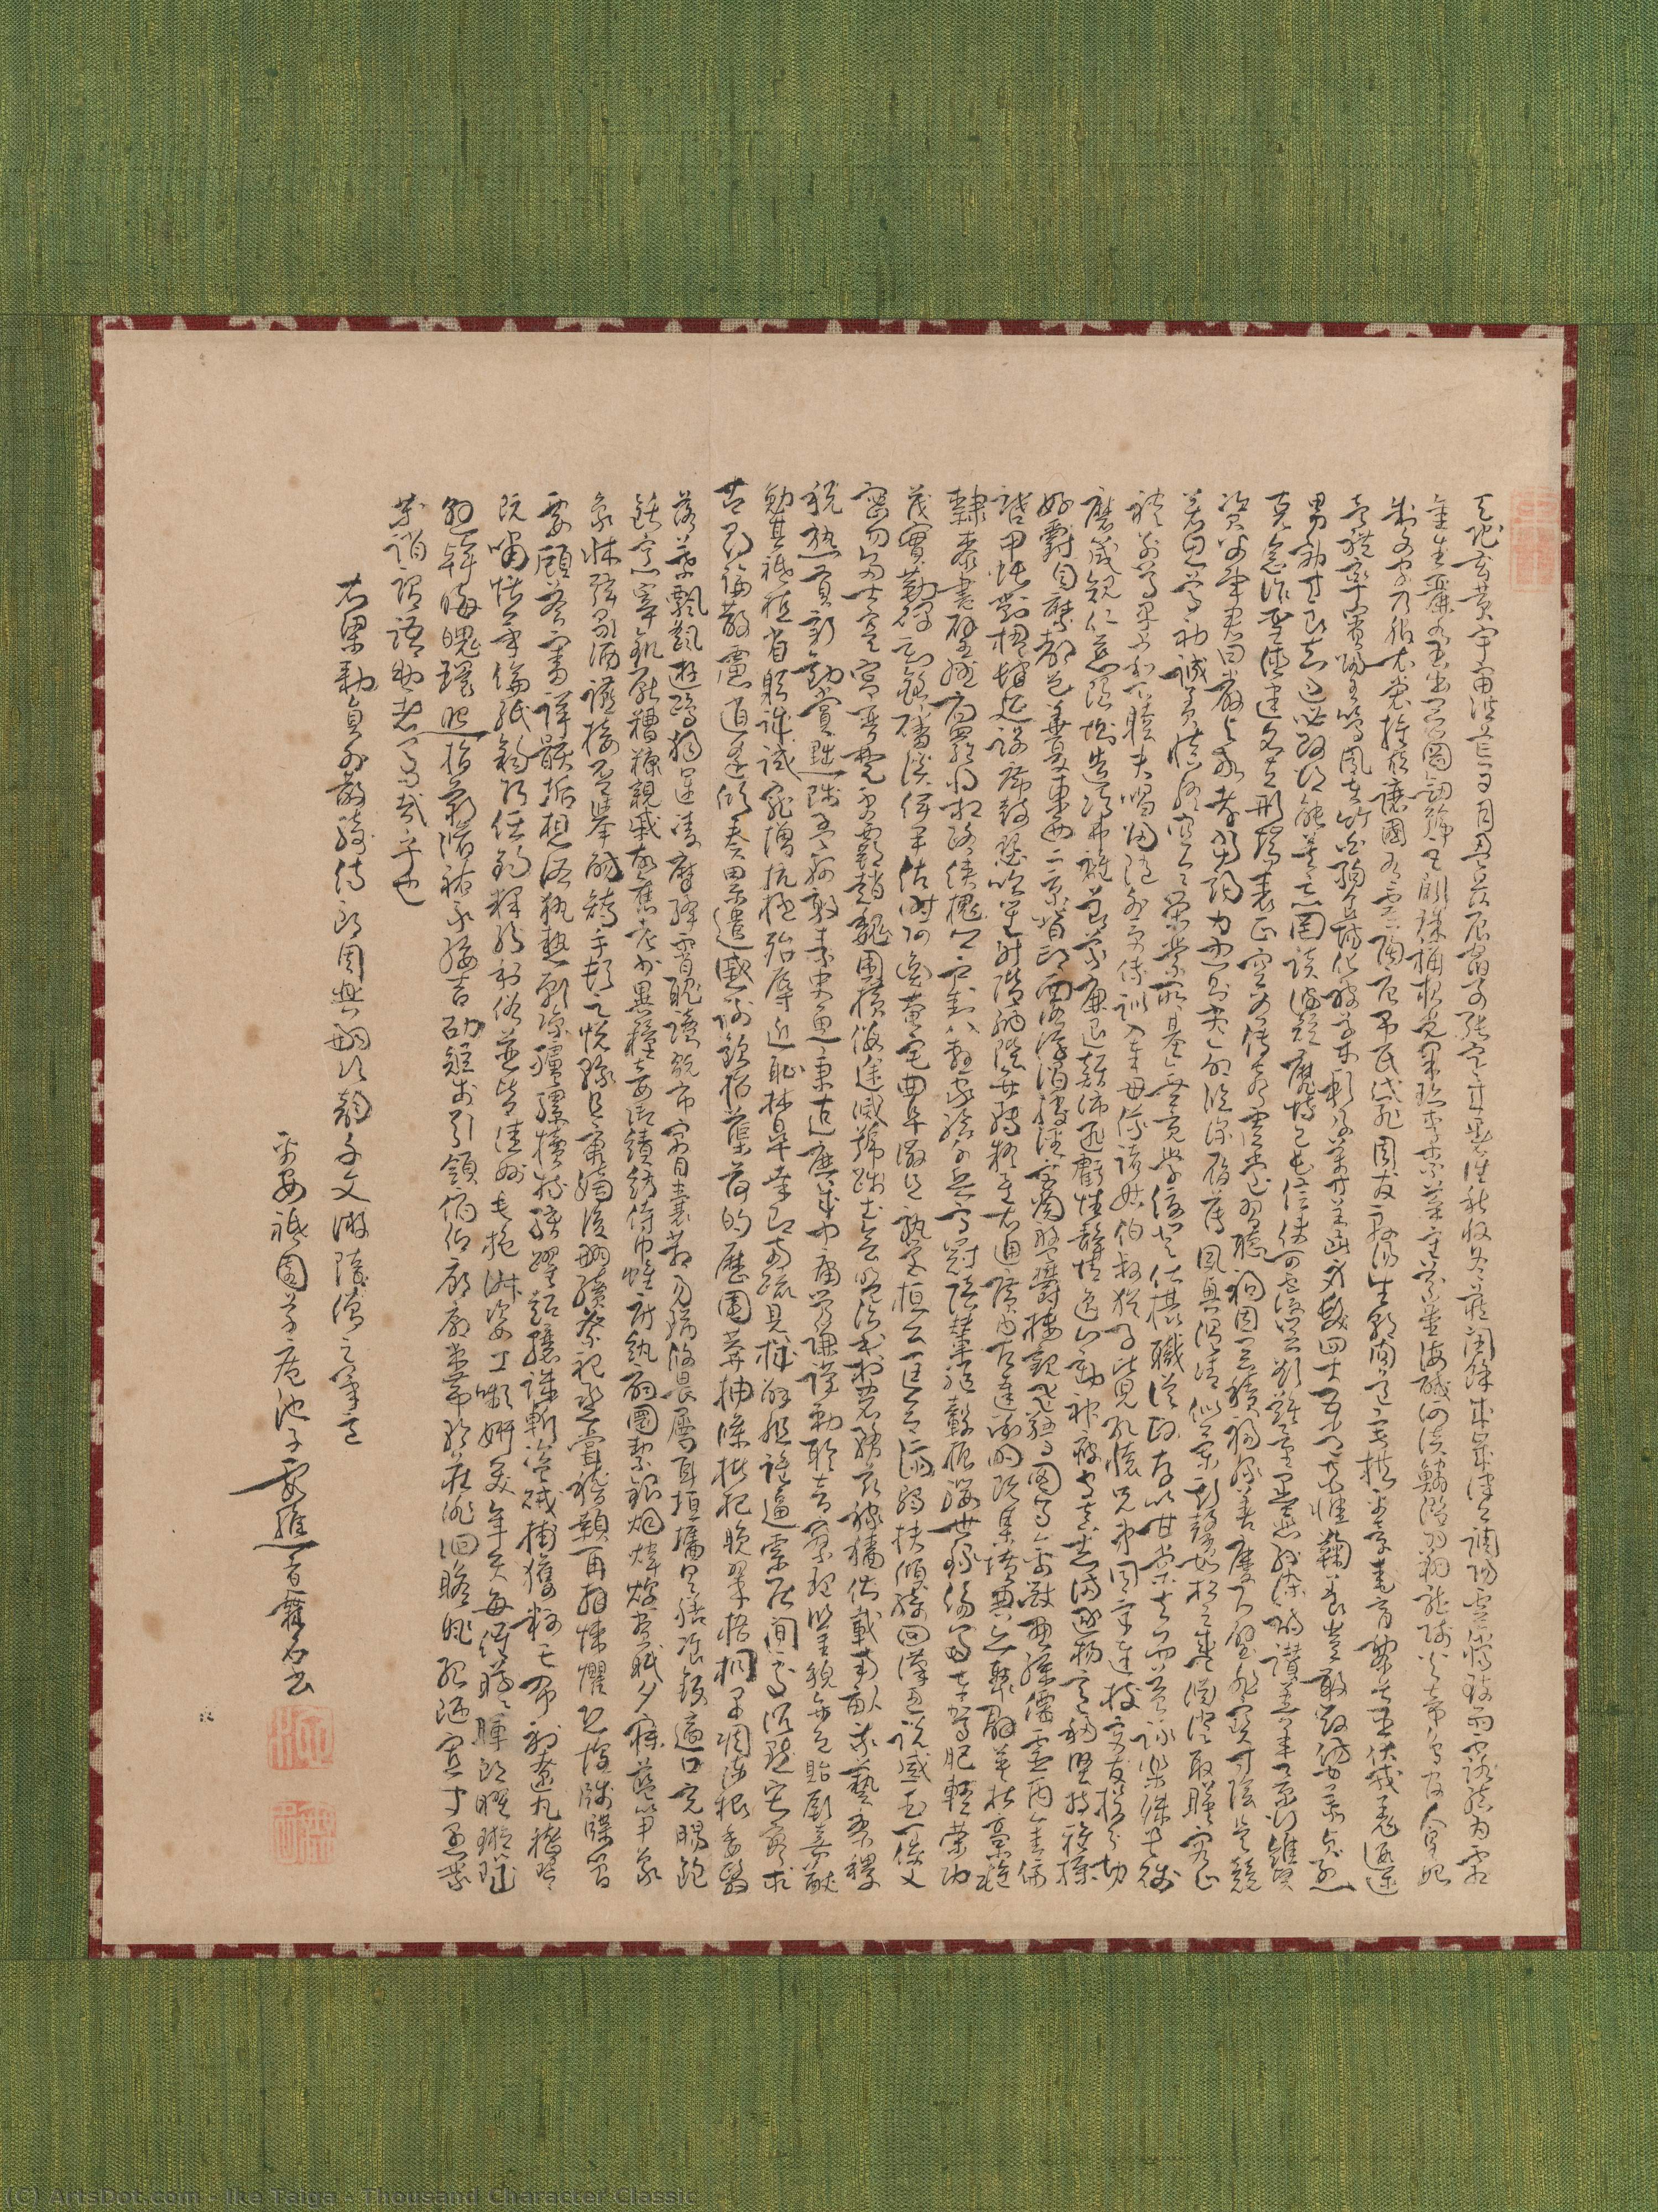 天地玄黃宇宙洪荒日月盈昃辰宿列張寒來暑往秋收冬藏閏餘成歲律呂調陽雲騰致雨露結為霜
金生麗水玉出崑岡劍號巨闕珠稱夜光果珍李柰菜重芥薑海鹹河淡鱗潛羽翔龍師火帝鳥官人皇始
制文字乃服衣裳推位讓國有虞陶唐弔民伐罪周發殷湯坐朝問道垂拱平章愛育黎首臣伏戎羌遐邇
壹體率賓歸王鳴鳳在竹白駒食場化被草木賴及萬方蓋此身髮四大五常恭惟鞠養豈敢毀傷女慕貞烈
男效才良知過必改得能莫忘罔談彼短靡恃己長信使可覆器欲難量墨悲絲染詩讚羔羊景行維賢
克念作聖德建名立形端表正空谷傳聲虛堂習聽禍因惡積福緣善慶尺璧非寶寸陰是競
資父事君曰嚴與敬孝當竭力忠則盡命臨深履薄夙興溫凊似蘭斯馨如松之盛川流不息淵澄取映容止
若思言辭安定篤初誠美慎終宜令榮業所基籍甚無竟學優登仕攝職從政存以甘棠去而益詠樂殊貴賤
禮別尊卑上和下睦夫唱婦隨外受傅訓入奉母儀諸姑伯叔猶子比兒孔懷兄弟同氣連枝交友投分切
磨箴規仁慈隱惻造次弗離節義廉退顛沛匪虧性靜情逸心動神疲守真志滿逐物意移堅持雅操
好爵自縻都邑華夏東西二京背邙面洛浮渭據涇宮殿盤鬱樓觀飛驚圖寫禽獸畫綵僊靈丙舍傍
啓甲帳對楹肆筵設席鼓瑟吹笙升階納陛弁轉疑星右通廣內左達承明既集墳典亦聚群英杜稾鍾
隸漆書壁經府羅將相路俠槐卿戶封八縣家給千兵高冠陪輦驅轂振纓世祿侈富車駕肥輕策功
茂實勒碑刻銘磻溪伊尹佐時阿衡奄宅曲阜微旦孰營桓公匡合濟弱扶傾綺迴漢惠說感武丁俊乂
密勿多士寔寧晉楚更霸趙魏困橫假途滅虢踐土會盟治本於農務茲稼穡俶載南畝我藝黍稷
稅熟貢新勸賞黜陟孟軻敦素史魚秉直庶幾中庸勞謙謹勅聆音察理鑒貌辨色貽厥嘉猷
勉其祗植省躬譏誡寵增抗極殆辱近恥林皋幸即兩疏見機解組誰逼索居閑處沉默寂寥求
古尋論散慮逍遙欣奏累遣慼謝歡招渠荷的歷園莽抽條枇杷晚翠梧桐早凋陳根委翳
落葉飄颻遊鵾獨運凌摩絳霄耽讀翫市寓目囊箱易輶攸畏屬耳垣牆具膳飧飯適口充腸飽
飫烹宰飢厭糟糠親戚故舊老少異糧妾御績紡侍巾帷房紈扇圓潔銀燭煒煌晝眠夕寐藍筍象
床絃歌酒讌接杯舉觴矯手頓足悅豫且康嫡後嗣續祭祀蒸嘗稽顙再拜悚懼恐惶牋牒簡
要顧答審詳骸垢想浴執熱願涼驢騾犢特駭躍超驤誅斬盜賊捕獲叛亡布射遼丸嵇琴
阮嘯恬筆倫紙鈞巧任釣釋紛利俗並皆佳妙毛施淑姿工嚬妍笑年矢每催曦暉朗曜璇璣
懸斡晦魄環照指薪修祜永綏吉劭矩步引領俯仰廊廟束帶矜莊徘徊瞻眺孤陋寡聞愚蒙
等誚謂語助者焉哉乎也
右梁勅員外散騎侍郎周興嗣次韻千文 隨僧之筆意
平安祇園草庵池子霞樵無名書
(C) ArtsDot.com - Ike Taiga - Thousand Character Classic